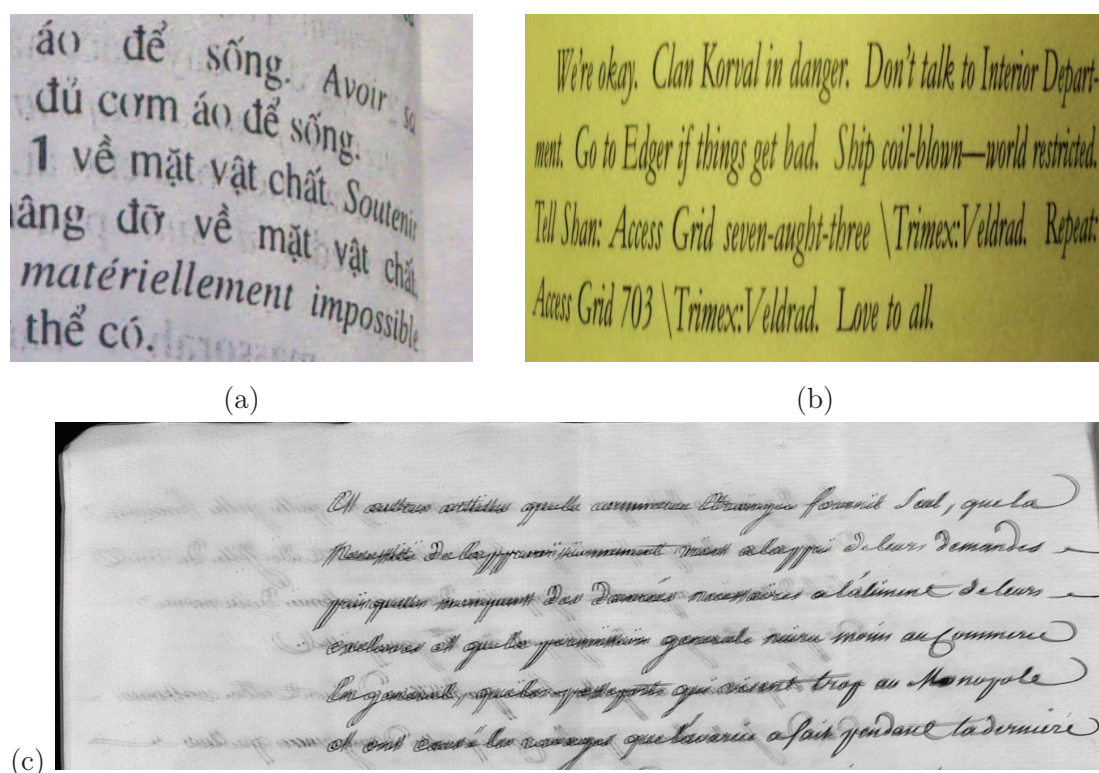 áo để sống. Avoir
đủ cơm áo để sống.
1 về mặt vật chất. Soutenir
đỡ về mặt vật chất.
matériellement impossible
thể có.
(a)
We're okay. Clan Korval in danger. Don't talk to Interior Depart-
ment. Go to Edger if things get bad. Ship coil-blown—world restricted.
Tell Shan: Access Grid seven-aught-three \Trimex:Veldrad. Repeat:
Access Grid 703 \Trimex:Veldrad. Love to all.
(b)
Et autres articles que le commerce Etranger fournit Seul, que la
moins a l'appui de leurs demandes
manquent des données nécessaires a l'aliment de leurs
esclaves et que la permission generale nuira moins au Commerce
En general, qui visent trop au Monopole
et ont que l'avarice a fait pendant la derniere
(c)